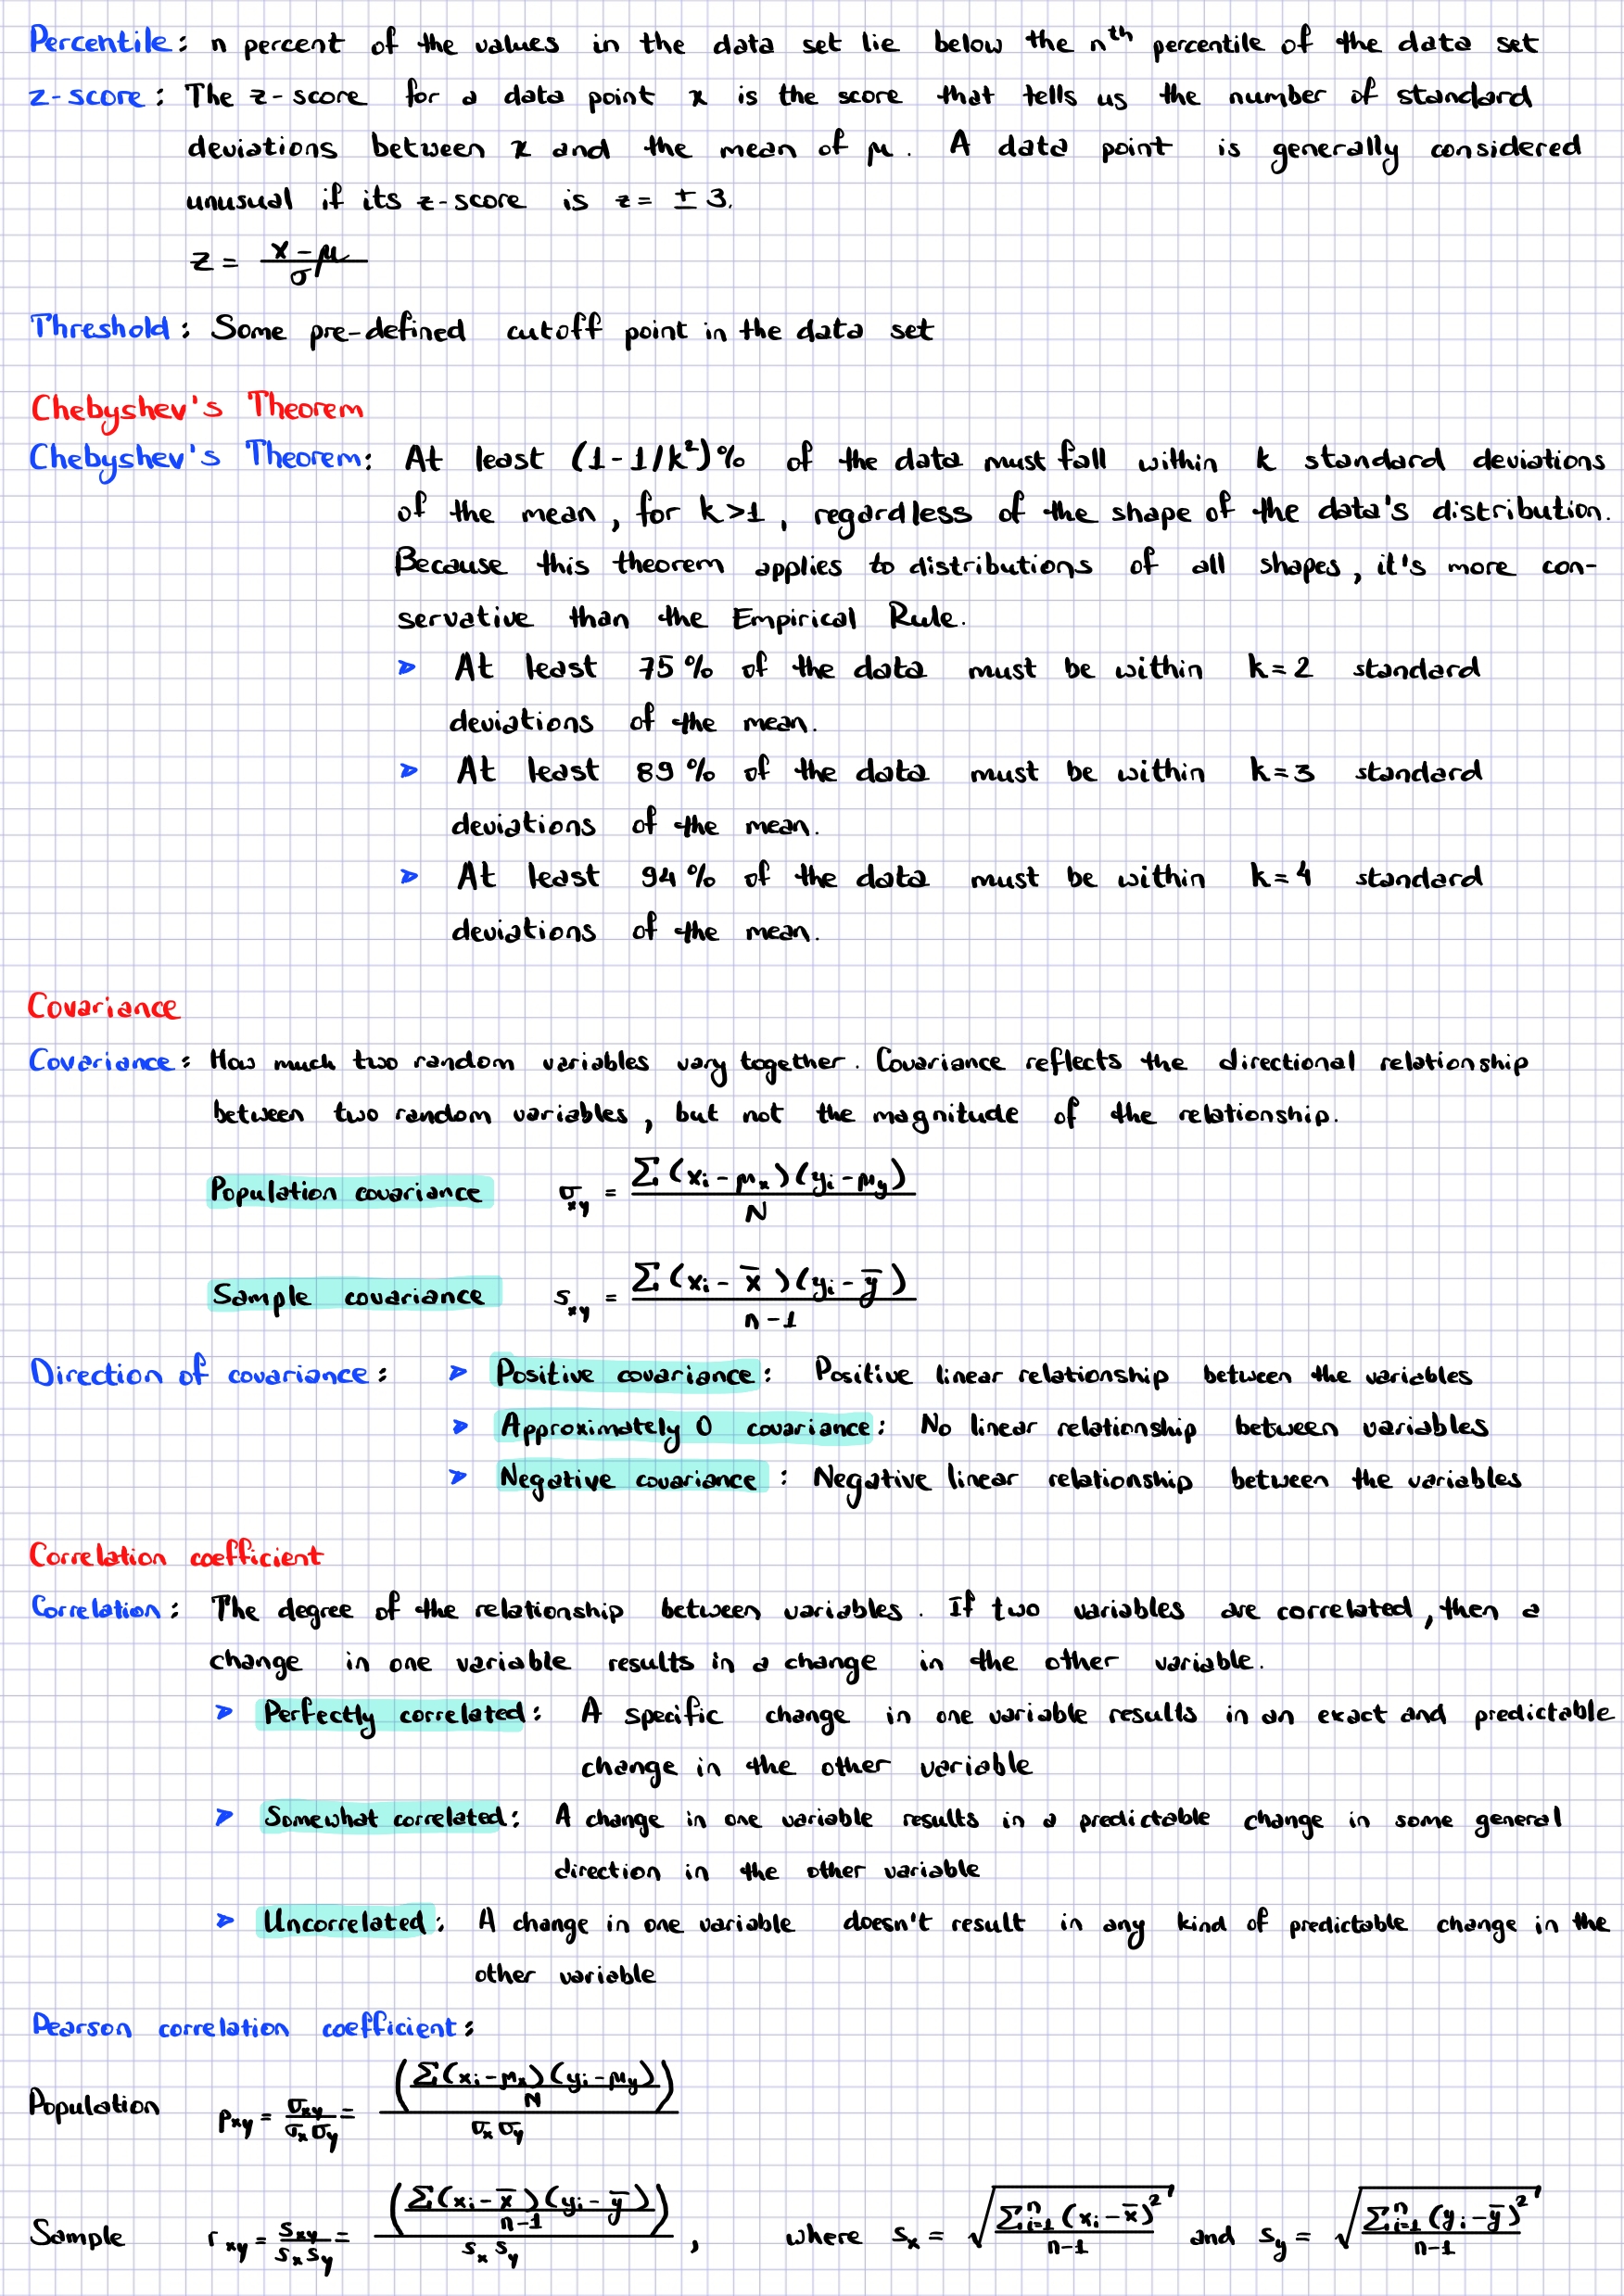 Percentile: n percent of the values in the data set lie below the nᵗʰ percentile of the data set
z-score: The z-score for a data point x is the score that tells us the number of standard
deviations between x and the mean of μ. A data point is generally considered
unusual if its z-score is z= ± 3.
z = (x-μ)/σ
Threshold: Some pre-defined cutoff point in the data set
Chebyshev's Theorem
Chebyshev's Theorem: At least (1-1/k²)% of the data must fall within k standard deviations
of the mean, for k>1, regardless of the shape of the data's distribution.
Because this theorem applies to distributions of all shapes, it's more con-
servative than the Empirical Rule.
➤ At least 75% of the data must be within k=2 standard
deviations of the mean.
➤ At least 89% of the data must be within k=3 standard
deviations of the mean.
➤ At least 94% of the data must be within k=4 standard
deviations of the mean.
Covariance
Covariance: How much two random variables vary together. Covariance reflects the directional relationship
between two random variables, but not the magnitude of the relationship.
Population covariance σ_xy = Σ(xᵢ-μ_x)(yᵢ-μ_y) / N
Sample covariance s_xy = Σ(xᵢ-x̄)(yᵢ-ȳ) / (n-1)
Direction of covariance: ➤ Positive covariance: Positive linear relationship between the variables
➤ Approximately 0 covariance: No linear relationship between variables
➤ Negative covariance: Negative linear relationship between the variables
Correlation coefficient
Correlation: The degree of the relationship between variables. If two variables are correlated, then a
change in one variable results in a change in the other variable.
➤ Perfectly correlated: A specific change in one variable results in an exact and predictable
change in the other variable
➤ Somewhat correlated: A change in one variable results in a predictable change in some general
direction in the other variable
➤ Uncorrelated: A change in one variable doesn't result in any kind of predictable change in the
other variable
Pearson correlation coefficient:
Population ρ_xy = σ_xy/(σ_x σ_y) = (Σ(xᵢ-μ_x)(yᵢ-μ_y)/N) / (σ_x σ_y)
Sample r_xy = s_xy/(s_x s_y) = (Σ(xᵢ-x̄)(yᵢ-ȳ)/(n-1)) / (s_x s_y), where s_x = √(Σⁿᵢ₌₁(xᵢ-x̄)²/(n-1)) and s_y = √(Σⁿᵢ₌₁(yᵢ-ȳ)²/(n-1))